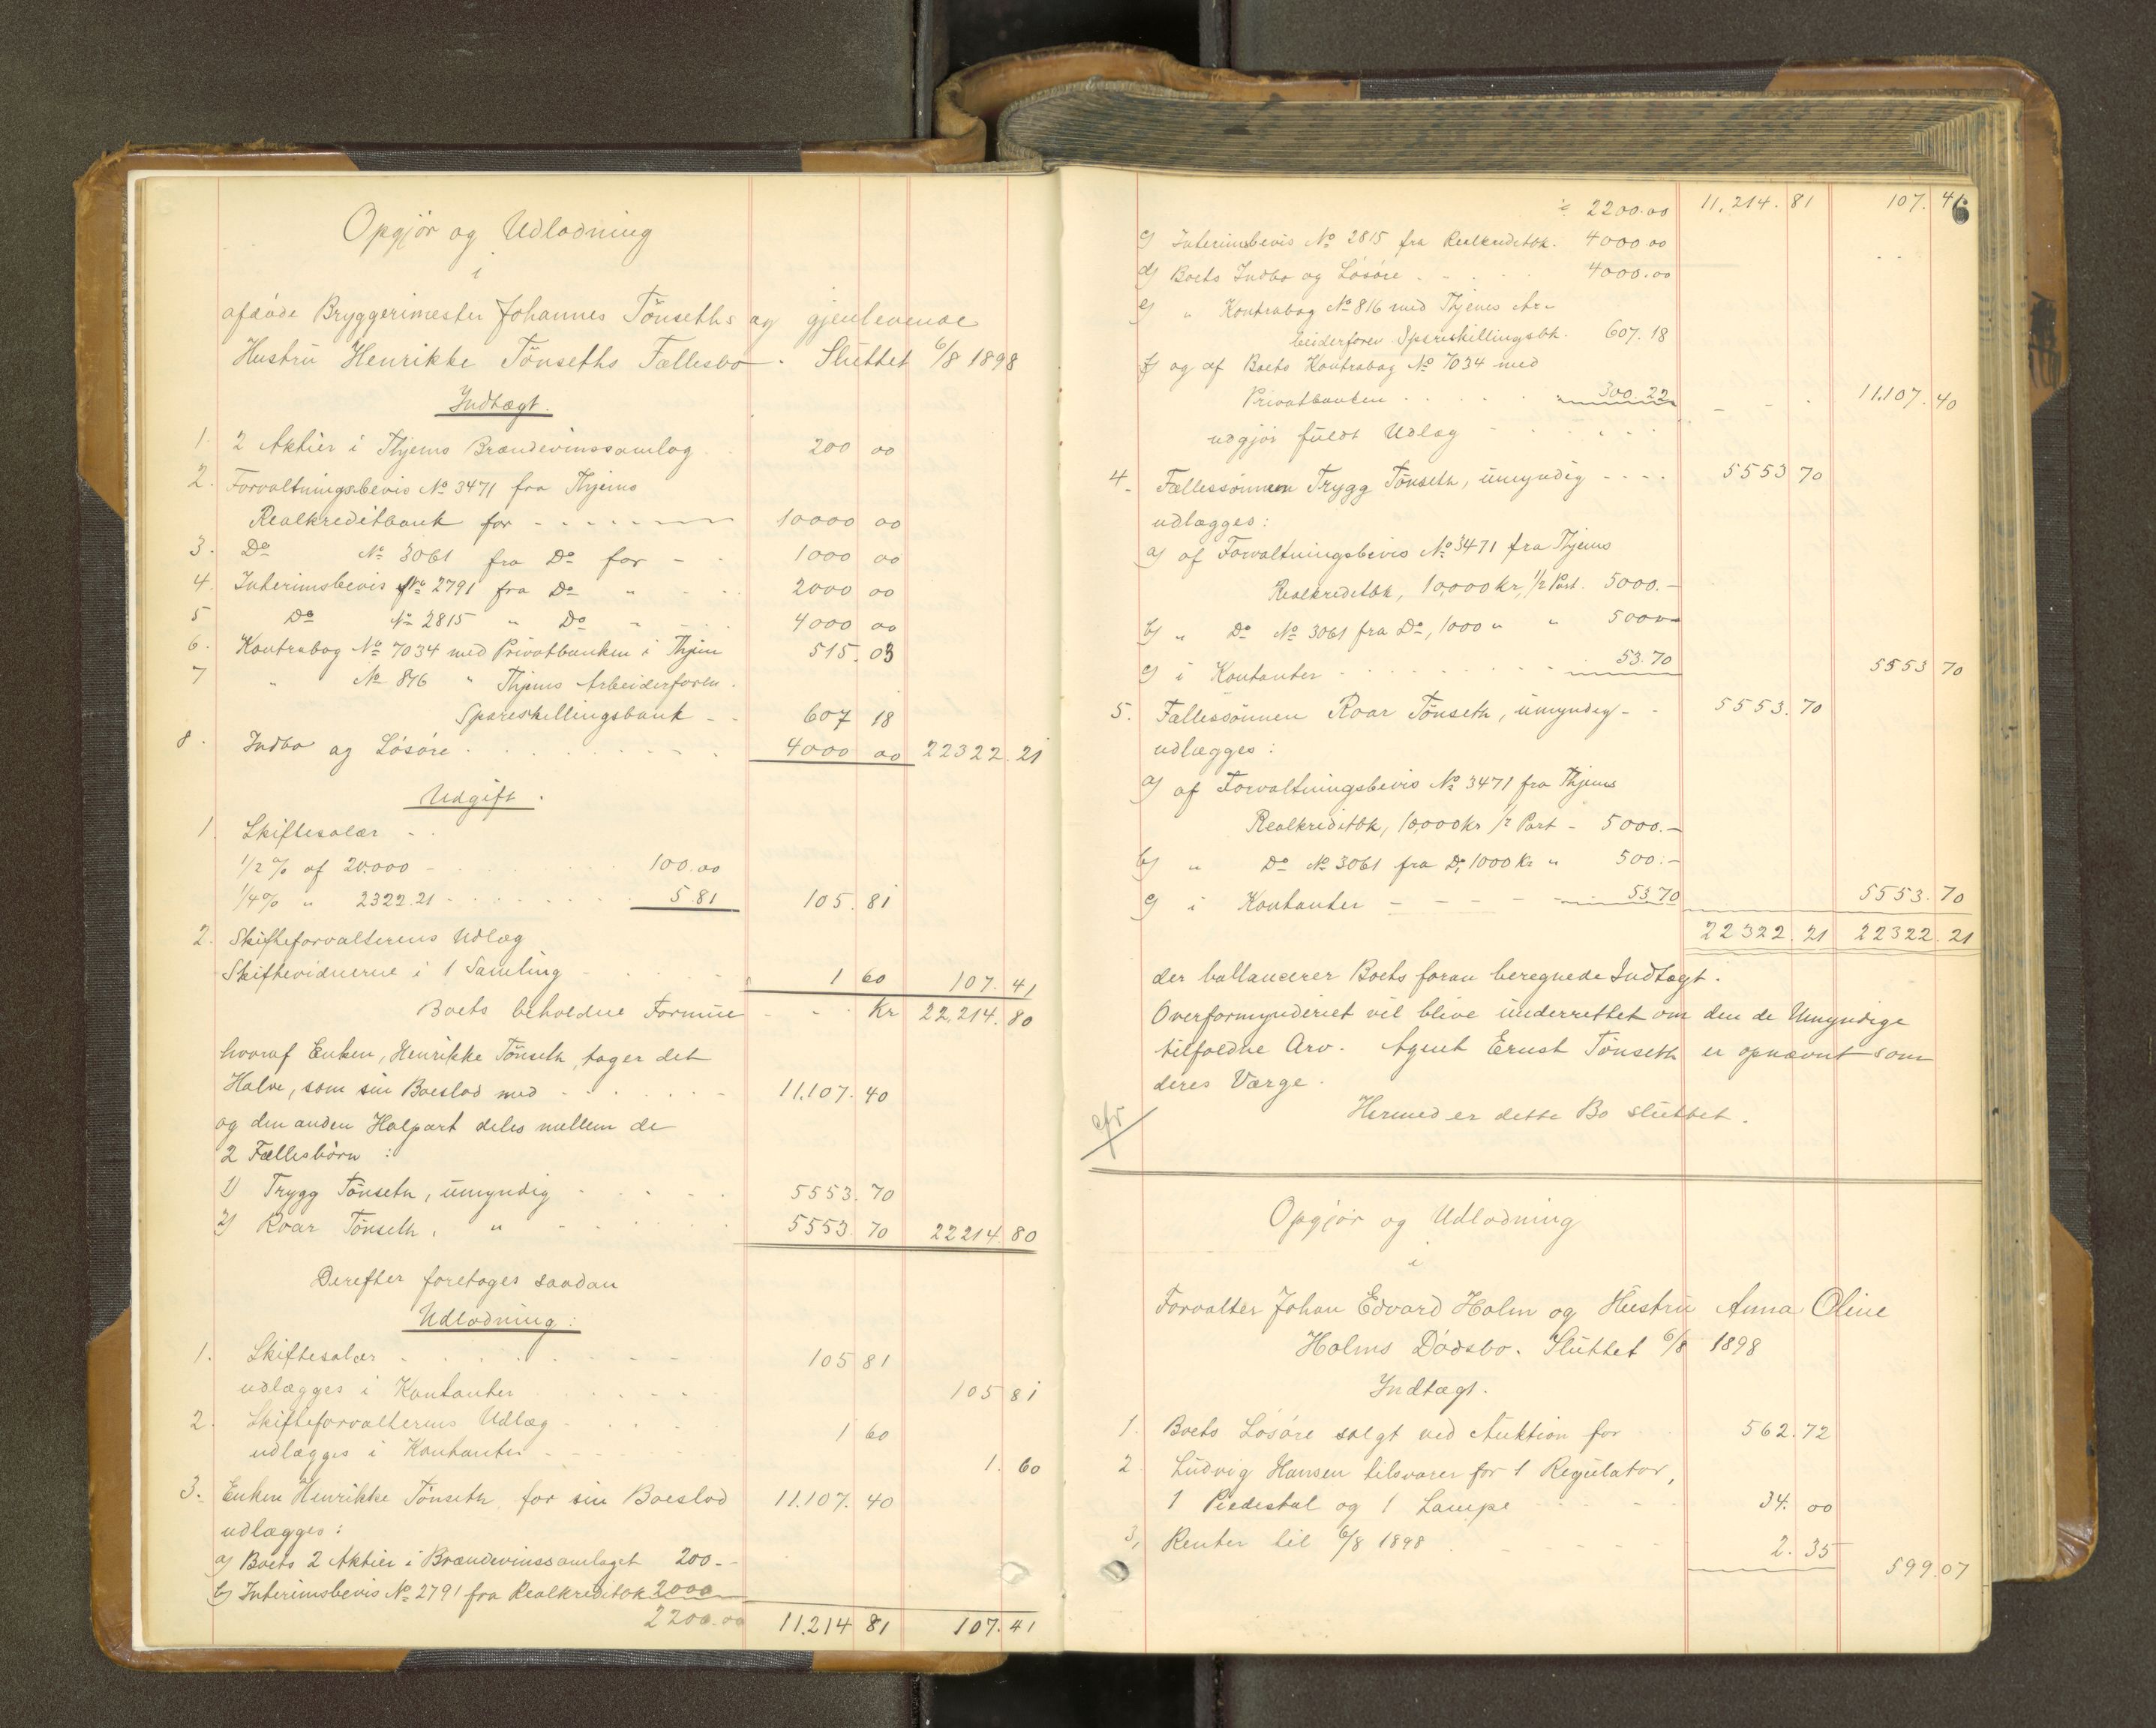 Opgjør og Udlodning
i
afdøde Bryggerimester Johannes Tönseths og gjenlevende
Hustru Henrikke Tönseths Fællesbo. Sluttet 6/8 1898
Indtægt.
1. 2 Aktier i Thjems Brændevinssamlag 200 00
2. Forvaltningsbevis No 3471 fra Thjems
Realkreditbank for - - - - 10000 00
3. Do No 3061 fra Do for - - 1000 00
4. Interimsbevis No 2791 fra Do " - - 2000 00
5 Do No 2815 " Do " - - 4000 00
6. Kontrabog No 7034 med Privatbanken i Thjem 515.03
7 " No 816 " Thjems Arbeiderforen.
Spareskillingsbank - - 607 18
8. Indbo og Løsøre - - - - 4000 00 22322.21
Udgift.
1. Skiftesalær - -
1/2 % af 20.000 - - - 100.00
1/4 % " 2322.21 - - - 5.81 105.81
2. Skifteforvalterens Udlæg
Skiftevidnerne i 1 Samling - - - 1 60 107.41
Boets beholdne Formue - - Kr 22,214.80
hvoraf Enken, Henrikke Tönseth, tager det
Halve, som sin Boeslod med - - - 11,107.40
og den anden Halpart deles mellem de
2 Fællesbörn :
1) Trygg Tönseth, umyndig - - - 5553.70
2) Roar Tönseth, " - - - 5553.70 22214.80
Derefter foretages saadan
Udlodning:
1. Skiftesalær - - - 105 81
udlægges i Kontanter - - - 105 81
2. Skifteforvalterens Udlæg - - - 1 60
udlægges i Kontanter - - - 1.60
3. Enken Henrikke Tönseth for sin Boeslod 11.107.40
udlægges:
a) Boets 2 Aktier i Brændevinssamlaget 200.-
b) Interimsbevis No 2791 fra Realkreditbk 2000
2200.00 11.214 81 107.41
6
2200.00 11,214.81 107.41
c) Interimsbevis No 2815 fra Realkreditbk. 4000.00
d) Boets Indbo og Løsøre - - - 4000.00
e) " Kontrabog No 816 med Thjems Ar-
beiderforen Spareskillingsbk. 607.18
f) og af Boets Kontrabog No 7034 med
Privatbanken - - - 300.22 - - - 11.107.40
udgjør fuldt Udlæg - - -
4. Fællessønnen Trygg Tönseth, umyndig - - - 5553 70
udlægges:
a) af Forvaltningsbevis No 3471 fra Thjems
Realkreditbk, 10,000 kr, 1/2 Part. 5000.-
b) " Do No 3061 fra Do, 1000 " " 500.-
c) i Kontanter - - - 53.70 5553 70
5. Fællessønnen Roar Tönseth, umyndig - - 5553.70
udlægges:
a) af Forvaltningsbevis No 3471 fra Thjems
Realkreditbk, 10,000 Kr 1/2 Part - 5000.-
b) " Do No 3061 fra Do, 1000 Kr " 500.-
c) i Kontanter - - - 53.70 5553.70
22322.21 22322.21
der ballancerer Boets foran beregnede Indtægt.
Overformynderiet vil blive underrettet om den de Umyndige
tilfaldne Arv. Agent Ernst Tönseth er opnævnt som
deres Værge.
Hermed er dette Bo sluttet.
cfr
Opgjør og Udlodning
i
Forvalter Johan Edvard Holm og Hustru Anna Oline
Holms Dødsbo. Sluttet 6/8 1898
Indtægt.
1. Boets Løsøre solgt ved Auktion for 562.72
2 Ludvig Hansen tilsvarer for 1 Regulator,
1 Piedestal og 1 Lampe - - - 34.00
3, Renter til 6/8 1898 - - - 2.35 599.07